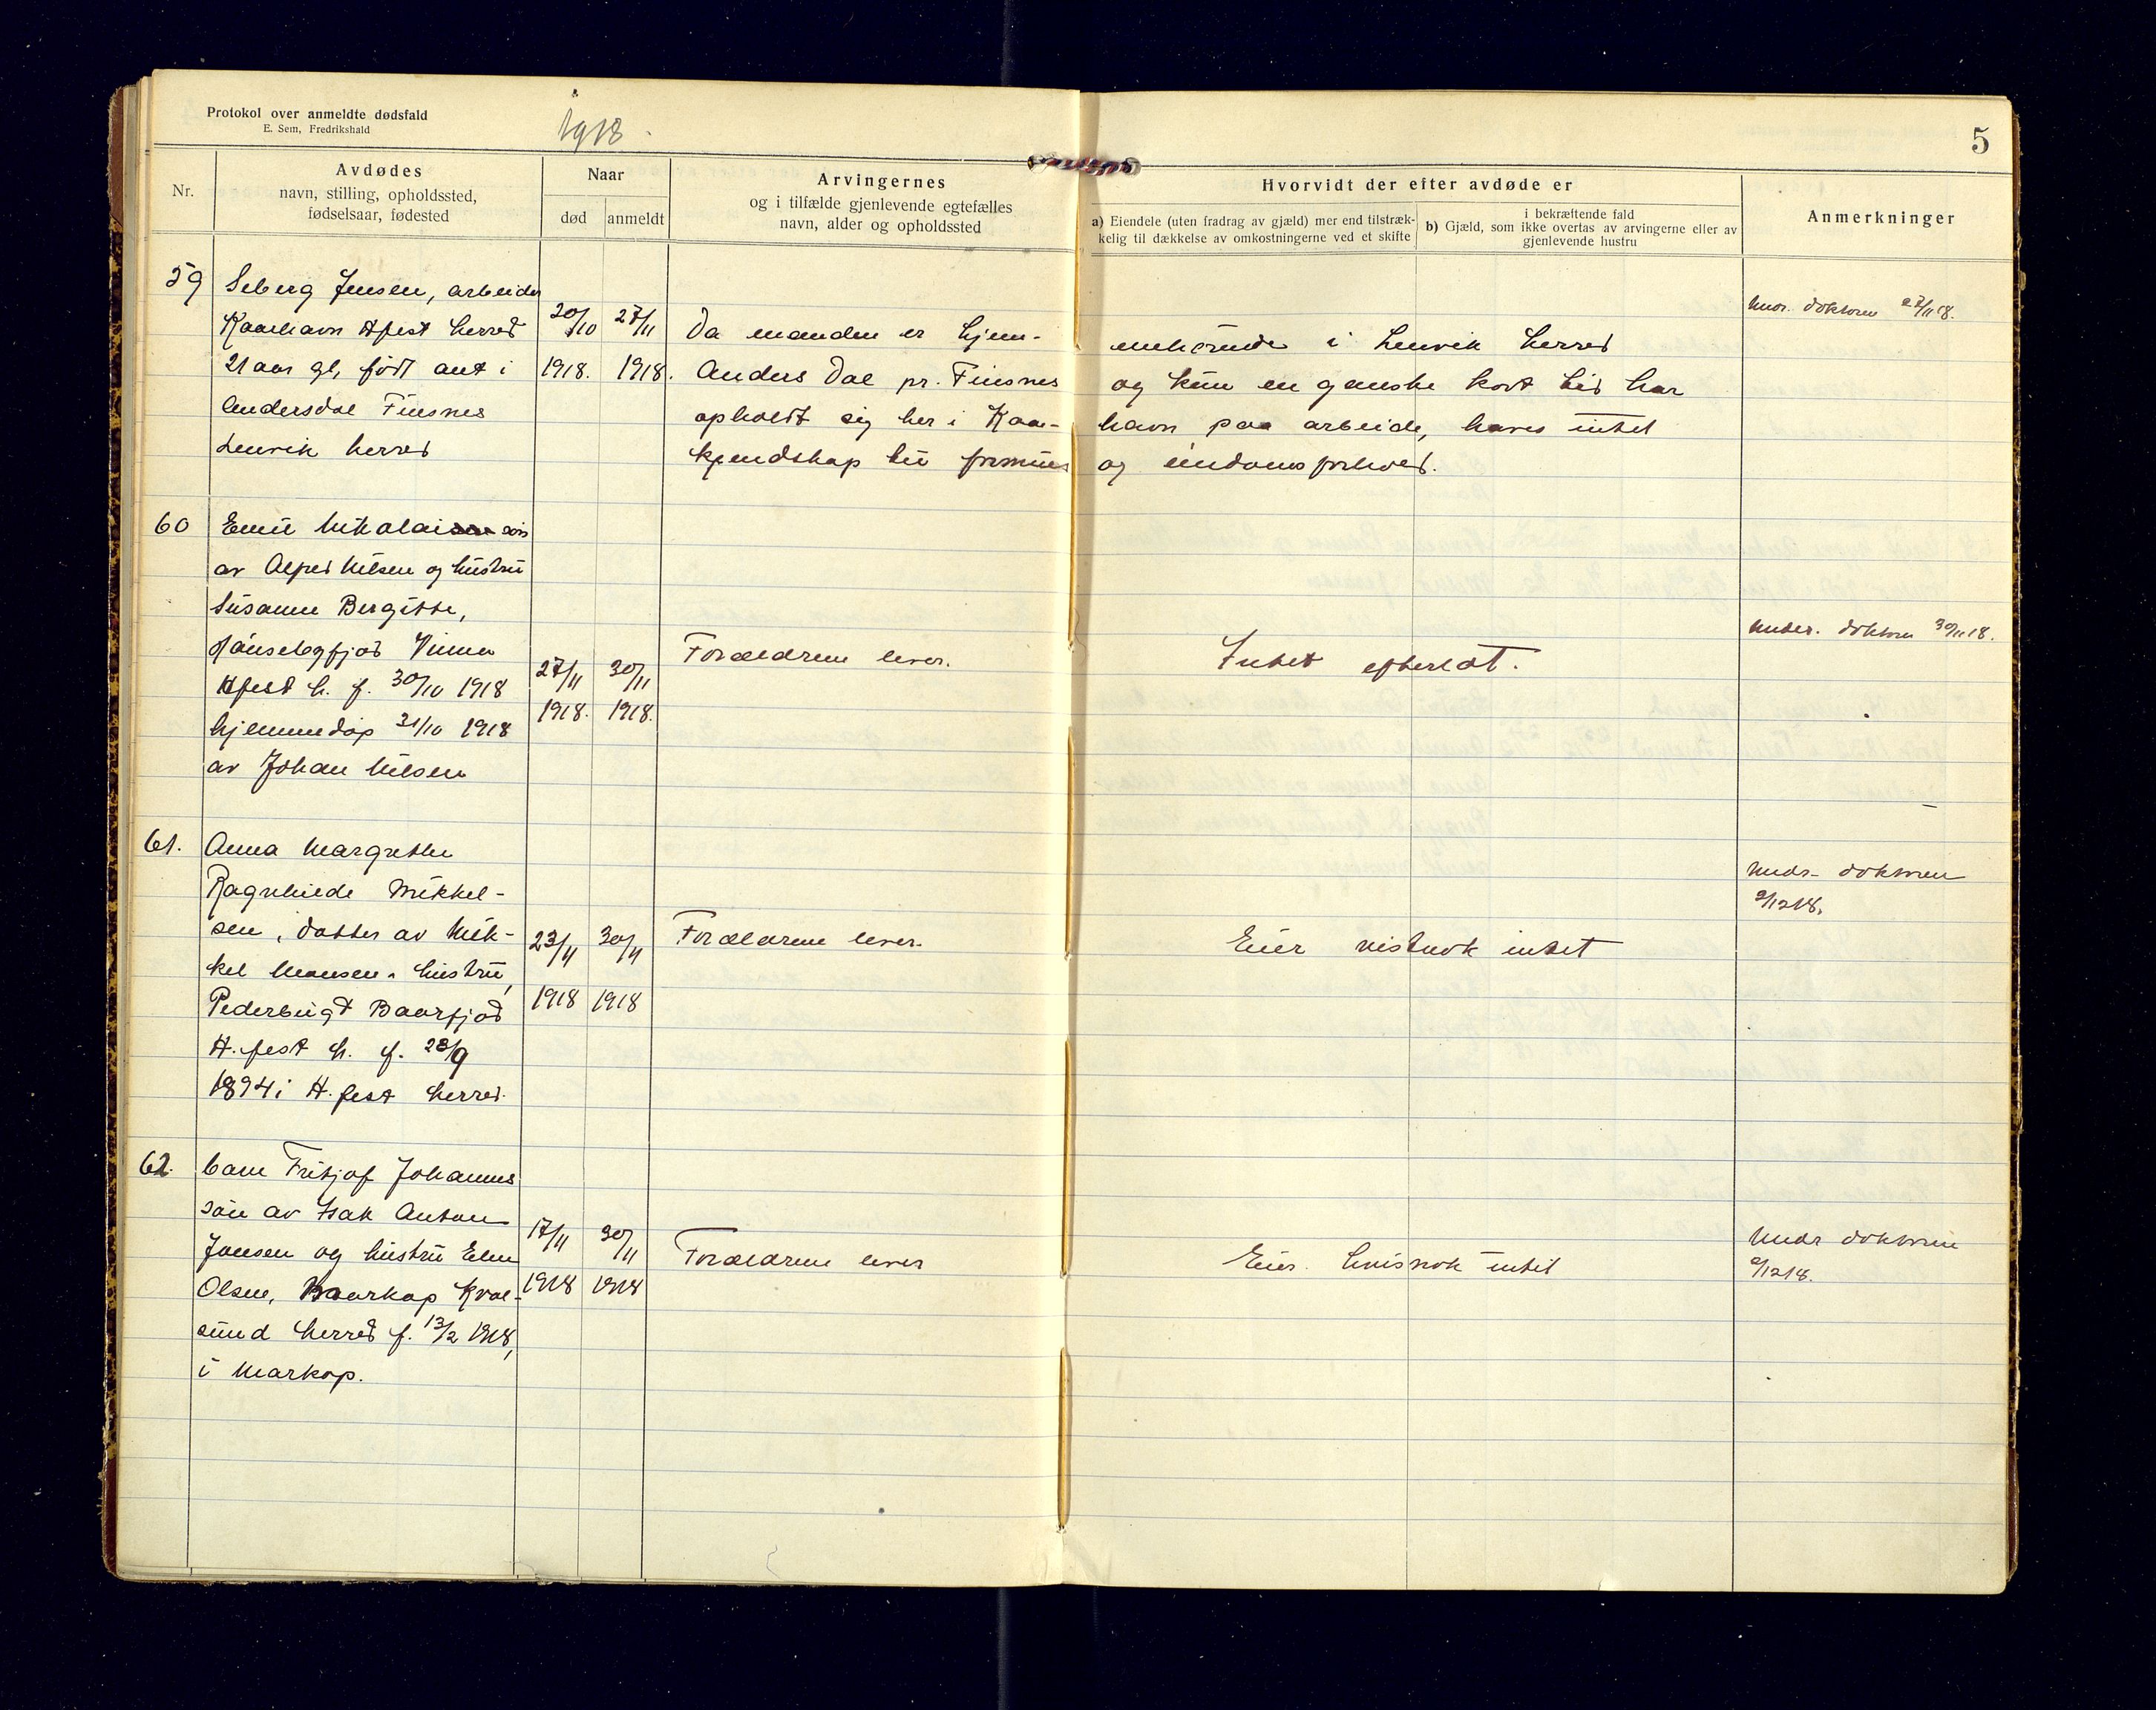 Protokol over anmeldte dødsfald
E. Sem, Fredrikshald
1918.
5
Nr.
Avdødes
navn, stilling, opholdssted,
fødselsaar, fødested
Naar
død
anmeldt
Arvingernes
og i tilfælde gjenlevende egtefælles
navn, alder og opholdssted
Hvorvidt der efter avdøde er
a) Eiendele (uten fradrag av gjæld) mer end tilstræk-
kelig til dækkelse av omkostningerne ved et skifte
i bekræftende fald
b) Gjæld, som ikke overtas av arvingerne eller av
gjenlevende hustru
Anmerkninger
59
Seberg Jensen, arbeider
Kaarhavn Hfest herred
21 aar gl, født ant i
Andersdal Finsnes
Lenvik herred
20/10
1918.
27/11
1918.
Da manden er hjem-
mehørende i Lenvik herred
Anders Dal pr. Finsnes
og kun en ganske kort tid har
opholdt sig her i Kaar-
havn paa arbeide, haves intet
kjendskap til formues
og eiendomsforhold.
undr. doktoren 27/11 18.
60
Emil Nikolai søn
av Alfred Nilsen og hustru
Susanne Bergitte,
Vinna
Hfest h. f. 30/10 1918
hjemmedøp 31/10 1918
av Johan Nilsen
27/11
1918.
30/11
1918.
Forældrene lever.
Intet efterladt.
under. doktoren 30/11 18.
61.
Anna Margrethe
Ragnhilde Mikkel-
sen, datter av Mik-
kel Monsen. hustru,
Pederbugt Baarfjod
H.fest h. f. 28/9
1894 i H.fest herred.
23/11
1918
30/11
1918
Forældrene lever.
Eier vistnok intet
undr. doktoren
2/12 18.
62.
barn Fritjof Johannes
søn av Isak Anton
Jonsen og hustru Elen
Olsen, Markop Kval-
sund herred f. 13/2 1918,
i Markop.
17/11
1918
30/11
1918
Forældrene lever
Eier intet
undr doktoren
2/12 18.